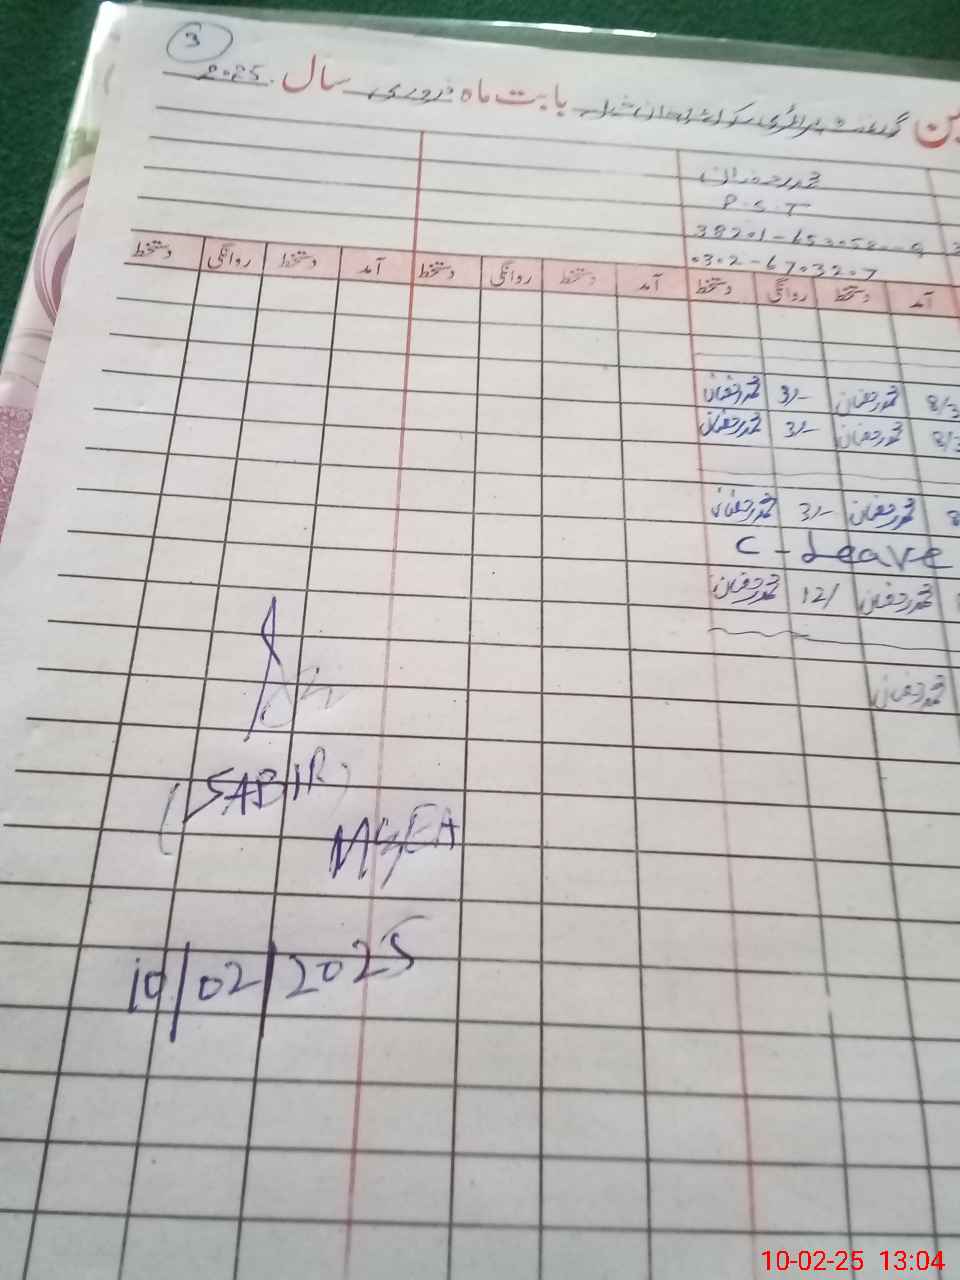 3
گورنمنٹ پرائمری سکول بابت ماہ فروری سال 2025
P.S.T
0302-6703207
آمد دستخط روانگی دستخط آمد دستخط روانگی دستخط آمد دستخط روانگی دستخط
8/3 محمد رمضان 3/- محمد رمضان
8/3 محمد رمضان 3/- محمد رمضان
8 محمد رمضان 3/- محمد رمضان
C - Leave
محمد رمضان 12/ محمد رمضان
محمد رمضان
(SABIR)
MGEA
10/02/2025
10-02-25 13:04